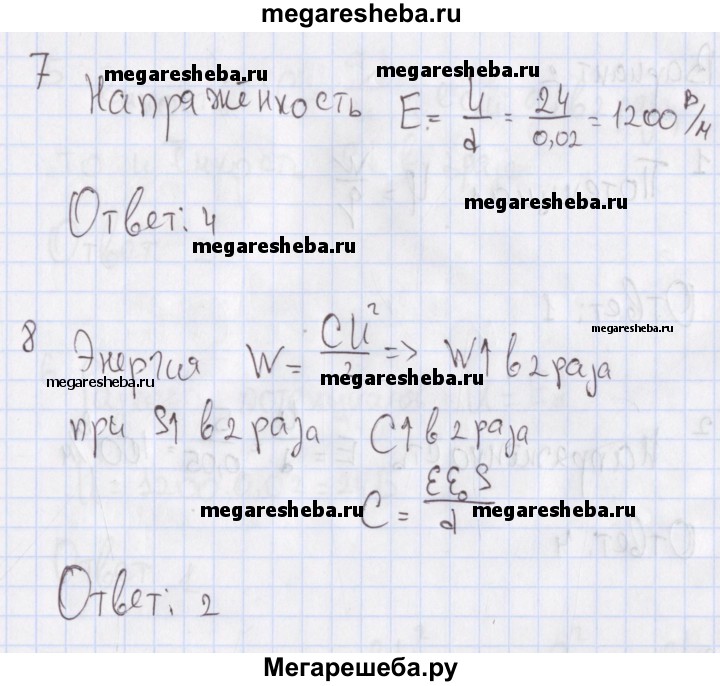 megaresheba.ru
7
megaresheba.ru
megaresheba.ru
Напряжёнкость E = U/d = 24/0,02 = 1200 В/м
megaresheba.ru
Ответ: 4
megaresheba.ru
8
megaresheba.ru
Энергия W = CU²/2 => W↑ в 2 раза
megaresheba.ru
megaresheba.ru
при S↑ в 2 раза C↑ в 2 раза
C = εε₀S/d
megaresheba.ru
megaresheba.ru
Ответ: 2
Мегарешеба.ру